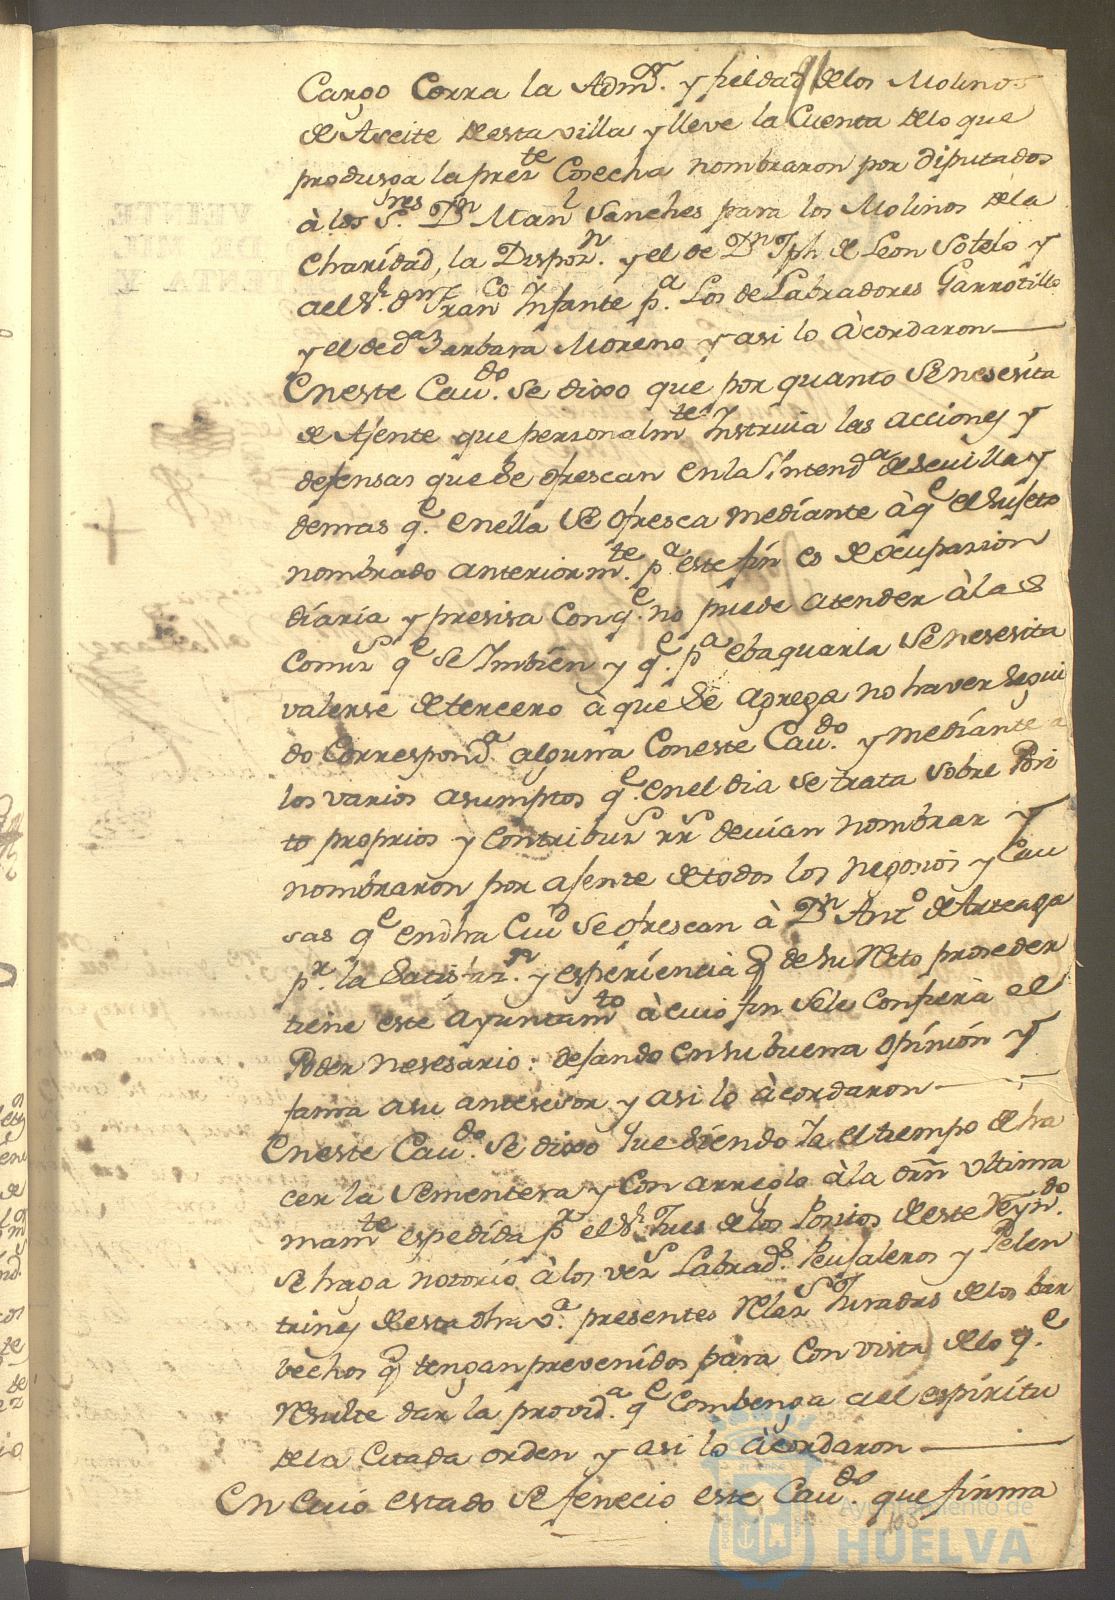 Cargo Corra la Adm.on y fieldad de los Molinos
de Aseite de esta villa y lleve la Cuenta de lo que
produsga la pres.te Cosecha nombraron por diputados
à los S.res D.n Man.l Sanches para los Molinos de la
Charidad, la Dispoz.n y el de D.n Jph de Leon Sotelo y
a el S.r d.n Fran.co Infante p.a Los de Labradores Garrotillo
y el de d.a Barbara Moreno y asi lo àcordaron
En este Cau.do se dixo que por quanto se nesesita
de Ajente que personalm.te Instruia las acciones y
defensas que se ofrescan en la Sintend.a de Seuilla y
demas q.e en ella se ofresca mediante à q.e el sujeto
nombrado anteriorm.te p.a este fin es de ocupasion
diaria y presisa con q.e no puede atender à las
Comis.s q.e se Imbien y q.e p.a ebaquarla se nesesita
valerse de tercero à que se agrega no haver segui
do Correspond.a alguna Con este Cau.do y mediante a
los varios asumptos q.e en el dia se trata sobre Posi
to proprios y Contribuz.s rr.s deuian nombrar y
nombraron por ajente de todos los negosios y Cau
sas q.e en dha Ciu.d se ofrescan à D.n Ant.o de Arteaga
p.r la satisfaz.n y esperiencia q de su Recto proseder
tiene este Ayuntam.to à cuio fin se le Confiera el
Poder nesesario: dejando en su buena opinion y
fama a su antesesor y asi lo àcordaron
En este Cau.do se dixo que siendo Ya el tiempo de ha
cer la Sementera y Con arreglo à la orñ vltima
mam.te espedida p.r el S.r Jues de los Positos de este Reyn.do
se haga notorio à los vez.s Labrad.s Peujaleros y Pelen
trines de esta dha v.a presentes Relaz.s Juradas de los bar
bechos q tengan prevenidos para Con vista de lo q.e
resulte dar la provid.a q.e Combenga al el espiritu
de la Citada orden y asi lo àcordaron
En Cuio estado se fenecio este Cau.do que firma
103
Ayuntamiento de
HUELVA